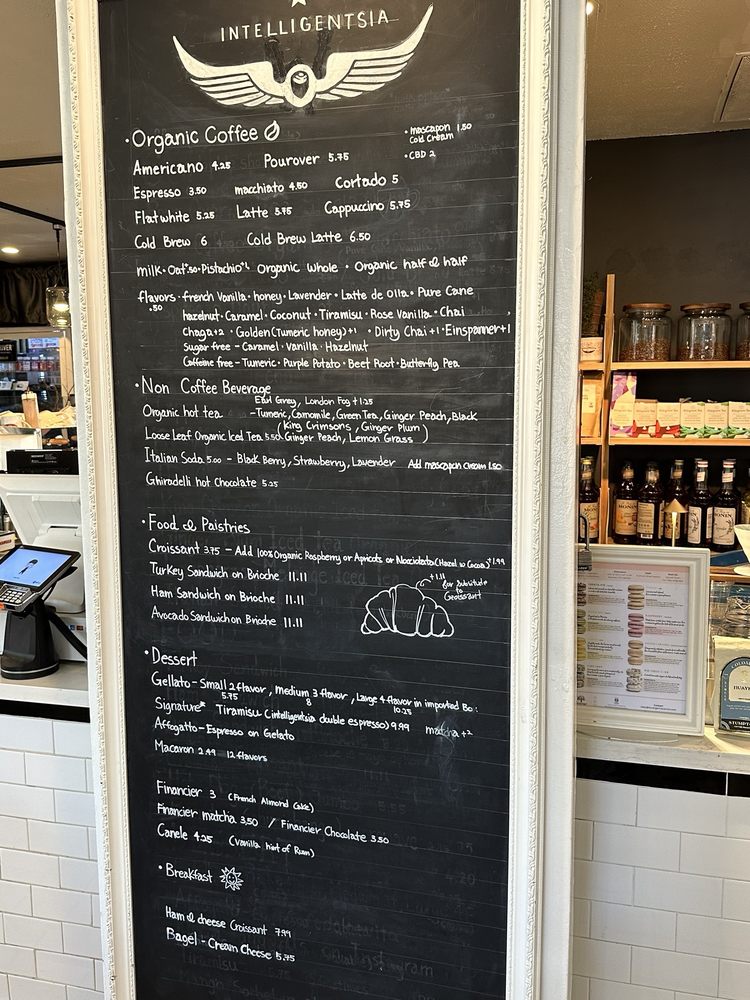 INTELLIGENTSIA
• Organic Coffee
• mascapon 1.50
Cold Cream
• CBD 2
Americano 4.25 Pourover 5.75
Espresso 3.50 macchiato 4.50 Cortado 5
Flatwhite 5.25 Latte 5.75 Cappuccino 5.75
Cold Brew 6 Cold Brew Latte 6.50
milk • Oat •.50 • Pistachio +1. Organic whole • Organic half & half
flavors • french Vanilla • honey • Lavender • Latte de Olla • Pure Cane
.50
hazelnut • Caramel • Coconut • Tiramisu • Rose Vanilla • Chai
Chaga+2 • Golden (Tumeric honey)+1 • Dirty Chai +1 • Einspanner+1
Sugar free - Caramel • Vanilla • Hazelnut
Caffeine free - Tumeric • Purple Potato • Beet Root • Butterfly Pea
• Non Coffee Beverage
Earl Grey, London Fog +1.25
Organic hot tea - Tumeric, Camomile, Green Tea, Ginger Peach, Black
(King Crimsons, Ginger Plum
Loose Leaf Organic Iced Tea 5.50 Ginger Peach, Lemon Grass )
Italian Soda 5.00 - Black Berry, Strawberry, Lavender Add mascapon cream 1.50
Ghiradelli hot Chocolate 5.25
• Food & Paistries
Croissant 3.75 - Add 100% Organic Raspberry or Apricots or Nocciolata (Hazel w Cocoa) +1.99
Turkey Sandwich on Brioche 11.11
+1.11
for Substitute
to
Croissant
Ham Sandwich on Brioche 11.11
Avocado Sandwich on Brioche 11.11
• Dessert
Gellato - Small 2 flavor, Medium 3 flavor, Large 4 flavor in imported Bo:
5.75 8 10.25
Signature* Tiramisu (intelligentsia double espresso) 9.99 matcha +2
Affogatto - Espresso on Gelato
Macaron 2.49 12 flavors
Financier 3 (French Almond Cake)
Financier matcha 3.50 / Financier Chocolate 3.50
Canele 4.25 (Vanilla hint of Rum)
• Breakfast
Ham & cheese Croissant 7.99
Bagel - Cream Cheese 5.75
Tiramisu
MONIN
STUMPTOWN